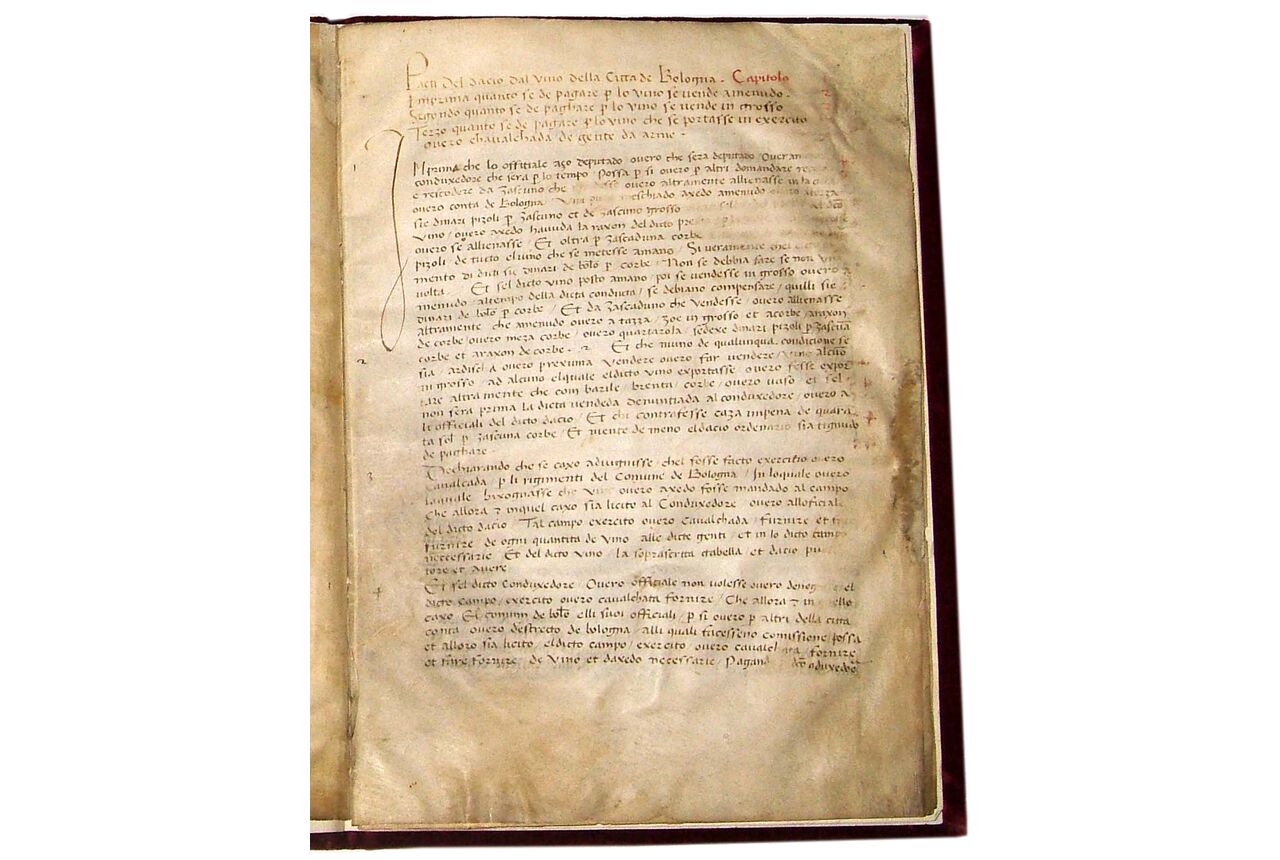 Pacti del dacio dal vino della Citta de Bologna. Capitolo
Imprima quanto se de pagare p lo vino se vende amenudo. 1
Segondo quanto se de paghare p lo vino se vende in grosso 2
Terzo quanto se de pagare p lo vino che se portasse in exercito 3
overo chavalchada de gente da arme.
1 Imprima che lo offitiale azo deputado overo che sera deputado Overa
conduxedore che sera p lo tempo Possa p si overo p altri domandare
e rescodere da zascuno che overo altramente allienasse in la
overo conta de Bologna meschiado axedo amenudo
sie dinari pizoli p zascuno et de zascuno grosso
vino overo axedo havuda la raxon del dicto
overo se allienasse / Et oltra p zascaduna corbe
pizoli de tucto el vino che se metesse amano / Si veramente
mento di dicti sie dinari de bolo p corbe / Non se debbia fare se non una
volta. Et sel dicto vino posto amano poi se vendesse in grosso overo a
menudo altempo della dicta conducta / se debiano compensare / quilli sie
dinari de bolo p corbe / Et da zascaduno che vendesse / overo allienasse
altramente che amenudo overo a tazza / zoe in grosso et acorbe / araxon
de corbe / overo meza corbe / overo quartarola / sedexe dinari pizoli p zascuna
2 corbe et araxon de corbe. 2 Et che nuno de qualunqua condicione se
sia / ardisca overo prexuma vendere overo far vendere / vino alcuno
in grosso / ad alcuno elquale eldicto vino exportasse / overo fesse expor
tare altramente che com barile / brenta / corbe / overo vaso / et sel
non sera prima la dicta vendeda denunciada al conduxedore / overo a
li officiali del dicto dacio / Et chi contrafesse caza impena de quara
ta sol p zascuna corbe / Et niente de meno eldacio ordenario sia tignudo
de paghare.
3 Dechiarando che se caxo advignisse / chel fosse facto exercitio overo
cavalcada / p li rigimenti del Comune de Bologna / In loquale overo
laquale bixognasse che vino overo axedo fosse mandado al campo
Che allora et inquel caxo sia licito al Conduxedore overo alloficiale
del dicto dacio Tal campo exercito overo cavalchada / furnire et
furnire de ogni quantita de vino alle dicte genti / et in lo dicto campo
necessarie Et del dicto vino / la soprascrita gabella / et dacio
tore et avere
4 Et sel dicto Conduxedore / Overo officiale non volesse overo el
dicto campo / exercito overo cavalchata fornire / Che allora et in ello
caxo El comun de bolo elli suoi officiali / p si overo p altri della citta
conta overo destrecto de bologna / alli quali facesseno comissione possa
et alloro sia licito / eldicto campo / exercito overo fornire
et fare fornire de vino et daxedo necessarie / Pagand